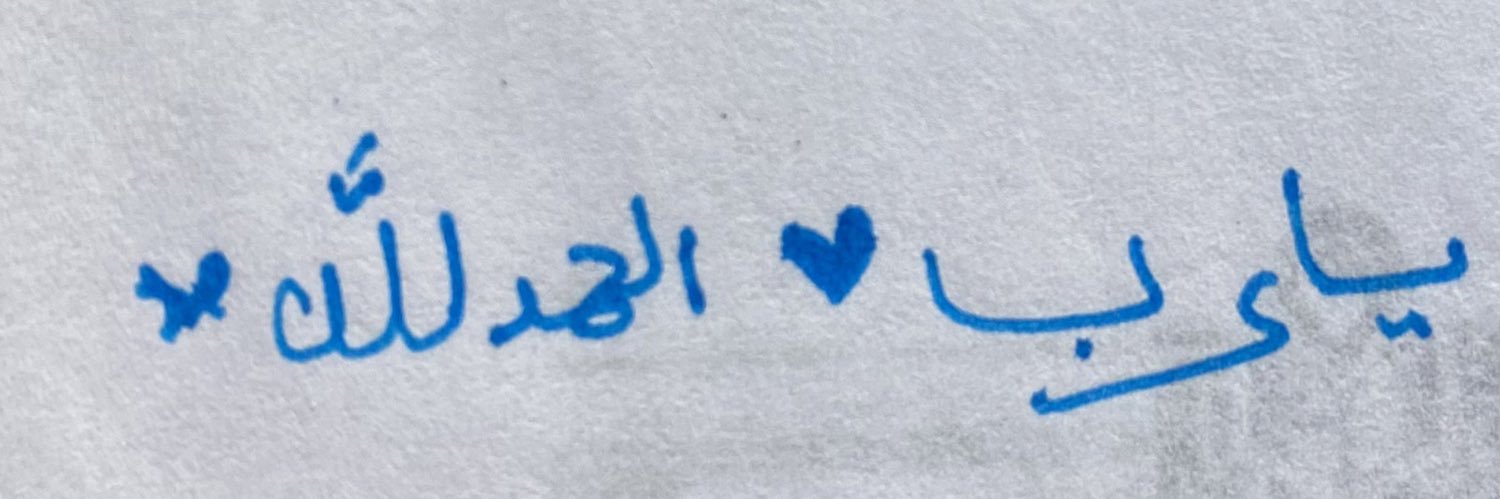 يارب ♥ الحمد للّٰه